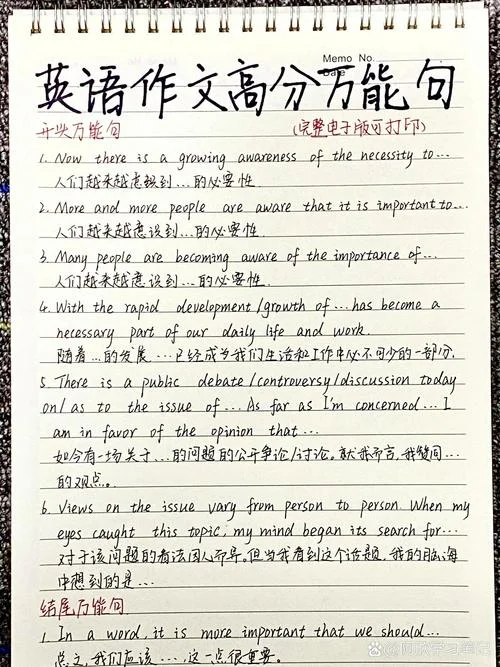 Memo No.
Date
英语作文高分万能句
开头万能句
(完整电子版可打印)
1. Now there is a growing awareness of the necessity to...
人们越来越意识到...的必要性.
2. More and more people are aware that it is important to...
人们越来越意识到...的必要性.
3. Many people are becoming aware of the importance of...
人们越来越意识到...的必要性.
4. With the rapid development/growth of...has become a
necessary part of our daily life and work.
随着...的发展...已经成为我们生活和工作中必不可少的一部分.
5. There is a public debate/controversy/discussion today
on/as to the issue of... As far as I'm concerned... I
am in favor of the opinion that...
如今有一场关于...的问题的公开争论/讨论。就我而言,我赞同...
的观点。
6. Views on the issue vary from person to person. When my
eyes caught this topic, my mind began its search for...
对于该问题的看法因人而异。但当我看到这个话题,我的脑海
中想到的是...
结尾万能句
1. In a word, it is more important that we should...
总之,我们应该...,这一点很重要。